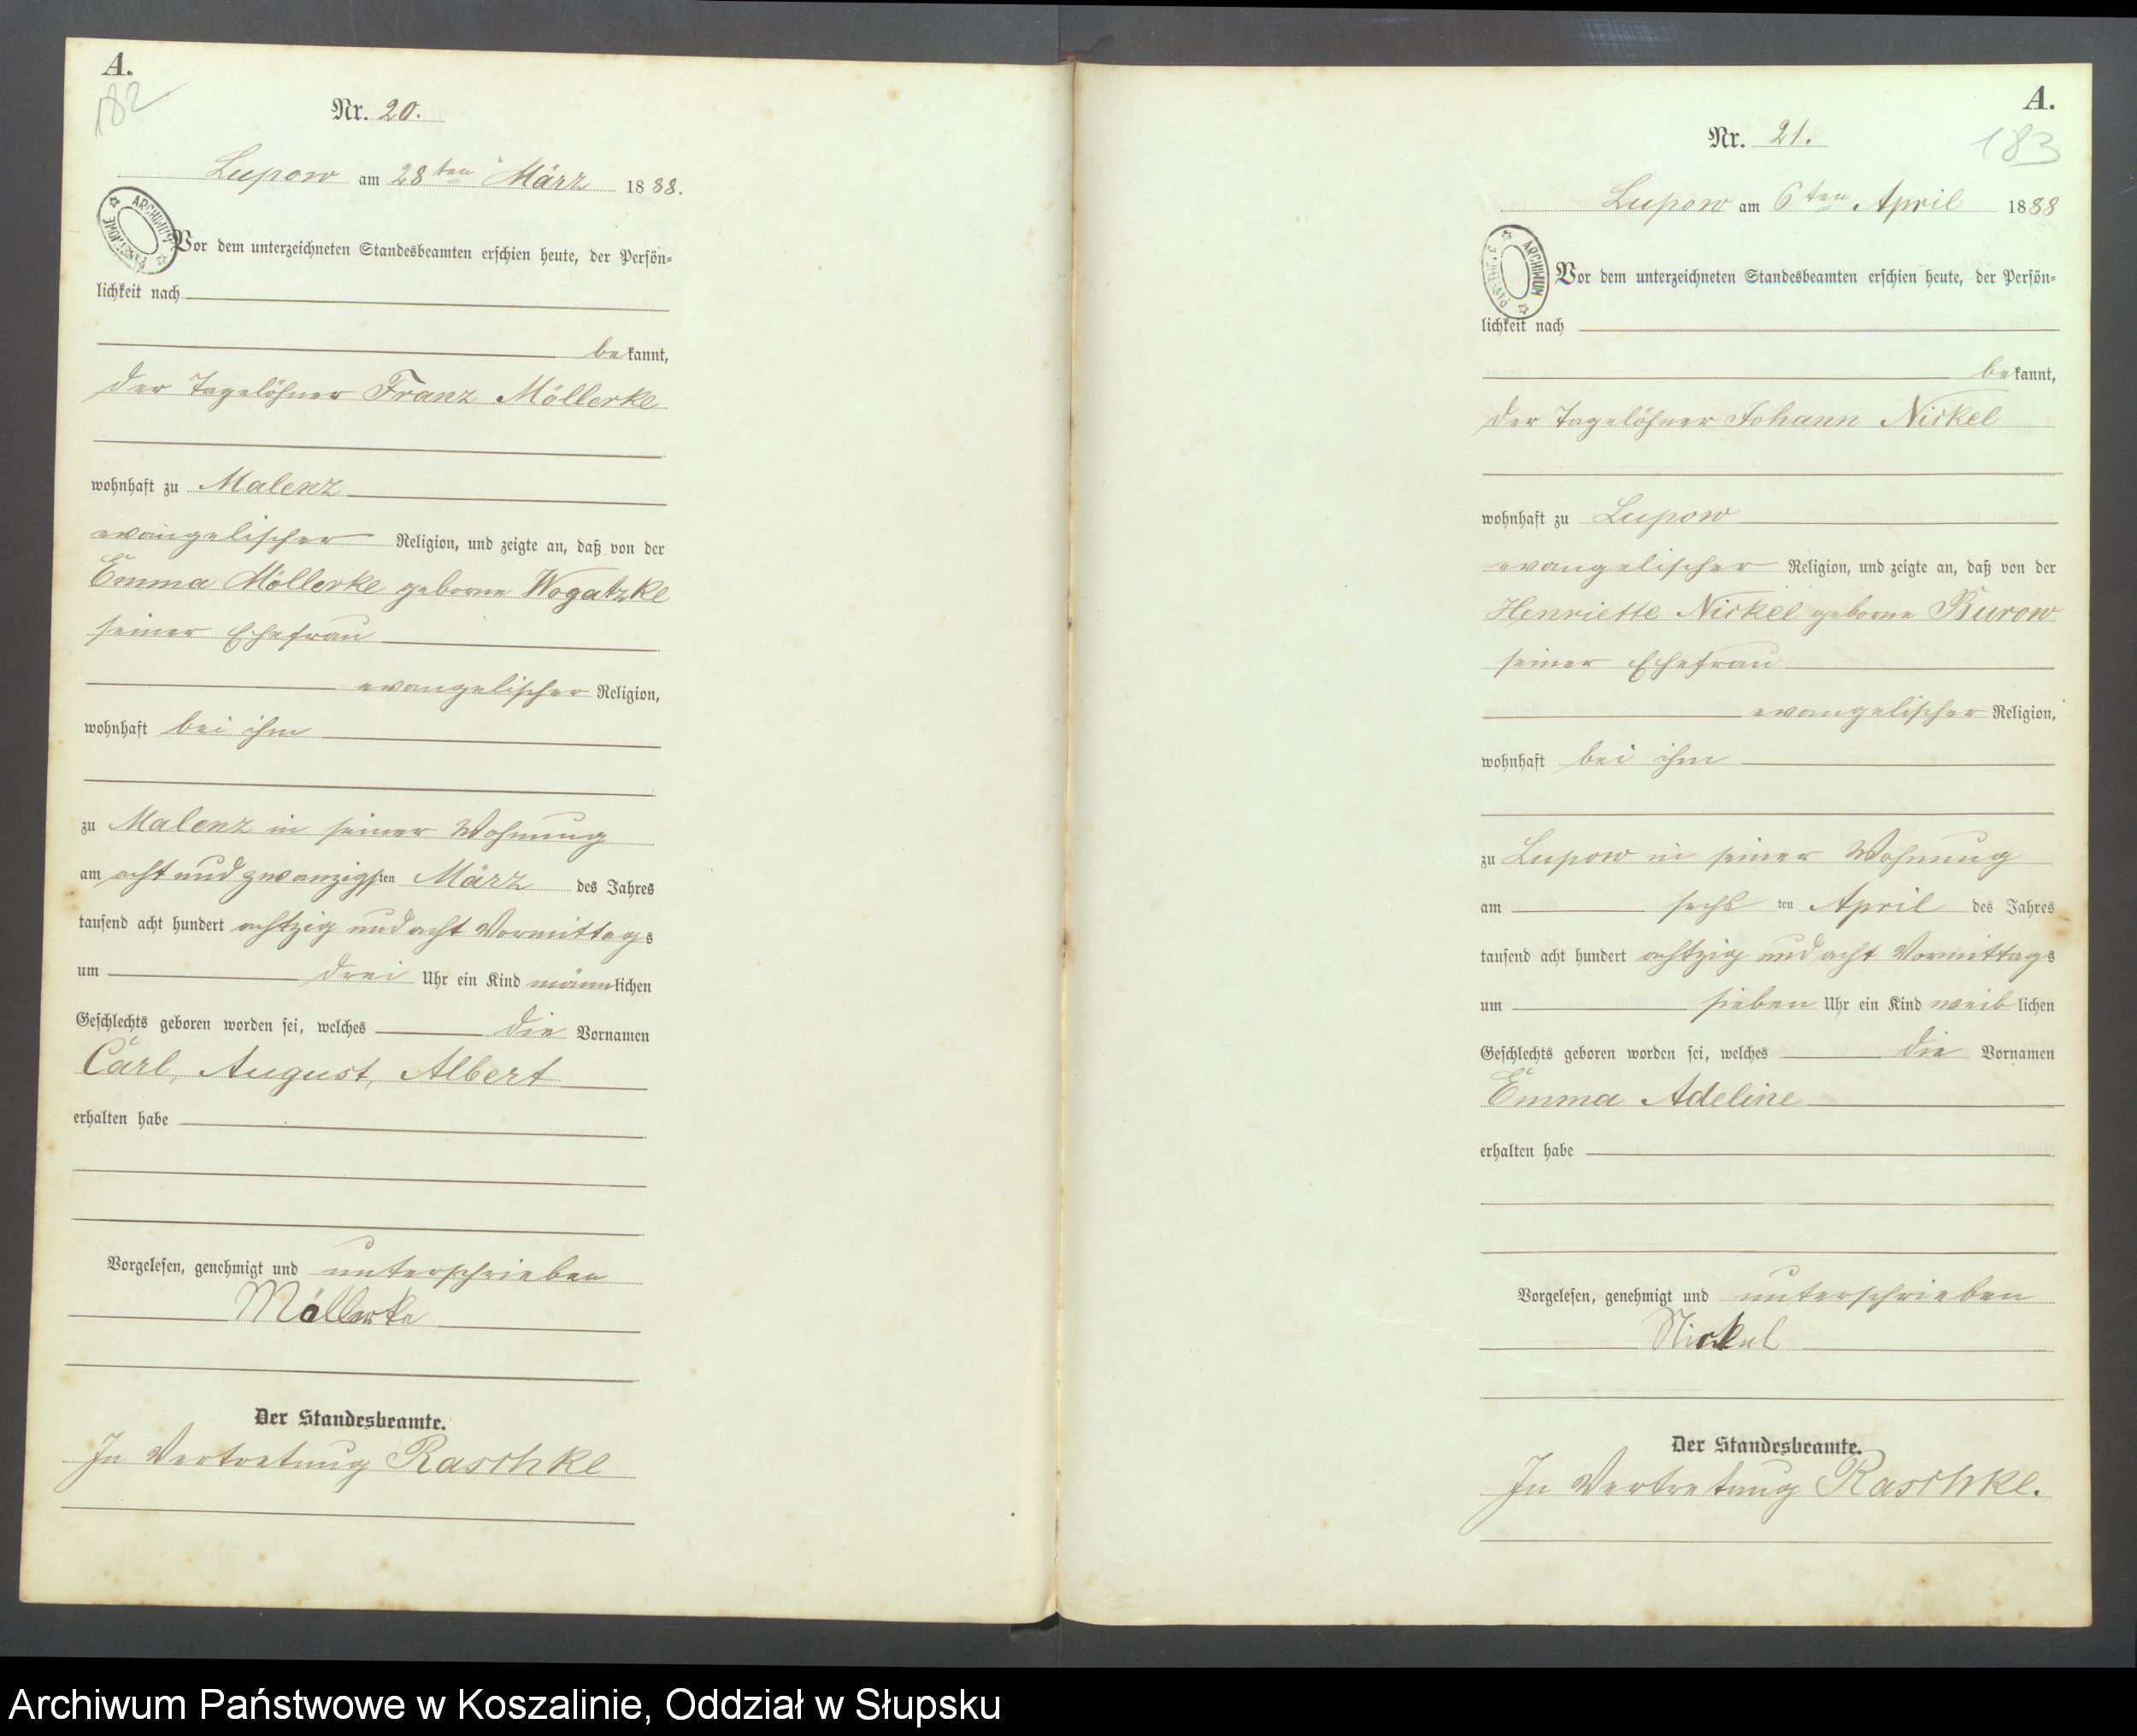 A.
182
Nr. 20.
Lupow am 28ten März 1888.
ARCHIWUM PAŃSTWOWE
Vor dem unterzeichneten Standesbeamten erschien heute, der Persön=
lichkeit nach
bekannt,
der Tagelöhner Franz Möllerke
wohnhaft zu Malenz
evangelischer Religion, und zeigte an, daß von der
Emma Möllerke geborne Wogatzke
seiner Ehefrau
evangelischer Religion,
wohnhaft bei ihm
zu Malenz in seiner Wohnung
am acht und zwanzigsten März des Jahres
tausend acht hundert achtzig und acht Vormittags
um drei Uhr ein Kind männlichen
Geschlechts geboren worden sei, welches die Vornamen
Carl, August, Albert
erhalten habe
Vorgelesen, genehmigt und unterschrieben
Möllerke
Der Standesbeamte.
In Vertretung Raschke
A.
183
Nr. 21.
Lupow am 6ten April 1888
ARCHIWUM
Vor dem unterzeichneten Standesbeamten erschien heute, der Persön=
lichkeit nach
bekannt,
der Tagelöhner Johann Nickel
wohnhaft zu Lupow
evangelischer Religion, und zeigte an, daß von der
Henriette Nickel geborne Burow
seiner Ehefrau
evangelischer Religion,
wohnhaft bei ihm
zu Lupow in seiner Wohnung
am sechsten April des Jahres
tausend acht hundert achtzig und acht Vormittags
um sieben Uhr ein Kind weiblichen
Geschlechts geboren worden sei, welches die Vornamen
Emma Adeline
erhalten habe
Vorgelesen, genehmigt und unterschrieben
Nickel
Der Standesbeamte.
In Vertretung Raschke.
Archiwum Państwowe w Koszalinie, Oddział w Słupsku